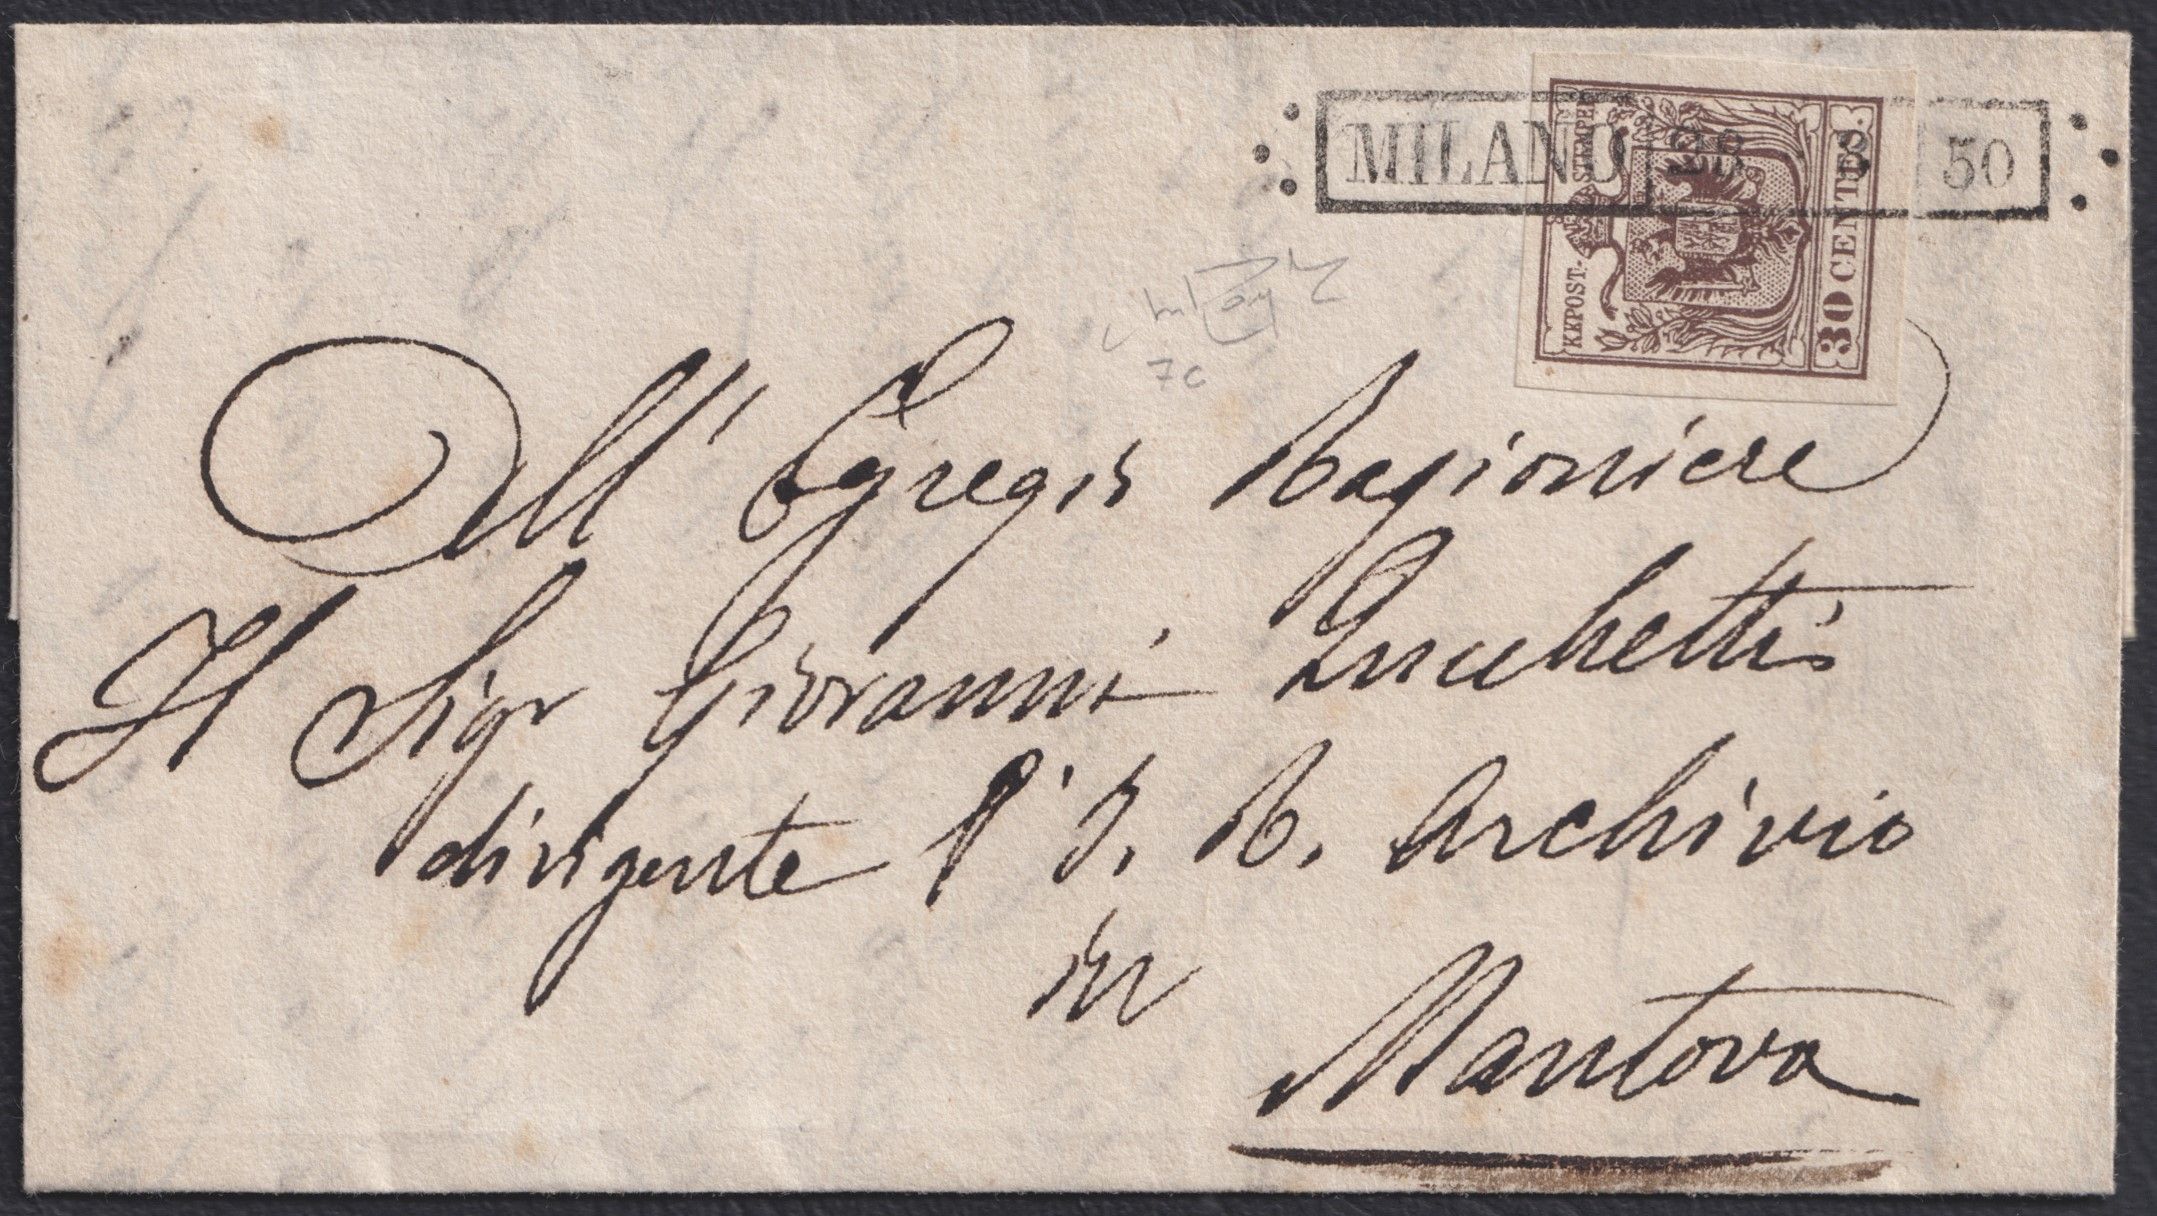 MILANO 28 8 50
KKPOST-STEMPEL
30 CENTES.
7c
All' Egregio Ragioniere
Il Sigr Giovanni Lucchetti
dirigente l' I. R. Archivio
in
Mantova